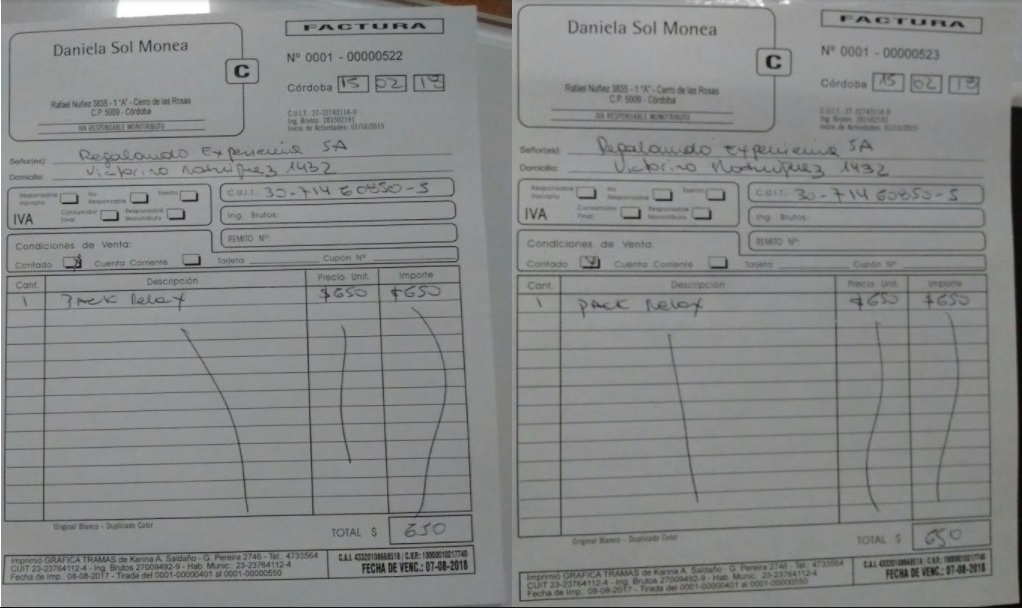 FACTURA
Daniela Sol Monea
C
Nº 0001 - 00000522
Córdoba 15 02 19
Rafael Nuñez 3835 - 1 "A" - Cerro de las Rosas
C.P. 5009 - Córdoba
IVA RESPONSABLE MONOTRIBUTO
Ing. Brutos: 281502191
Inicio de Actividades: 02/10/2015
Señor(es): Regalando Experiencia SA
Domicilio: Victorino 1432
Responsable Inscripto
No Responsable
Exento
IVA
Consumidor Final
Responsable Monotributo
C.U.I.T.: 30-71460850-5
Ing. Brutos:
REMITO Nº:
Condiciones de Venta:
Contado
Cuenta Corriente
Tarjeta
Cupón Nº
Cant. Descripción Precio Unit. Importe
1 PACK Relax $650 $650
Original Blanco - Duplicado Color
TOTAL $ 650
Imprimió GRAFICA TRAMAS de Karina A. Saldaño - G. Pereira 2746 - Tel.: 4733564
CUIT 23-23764112-4 - Ing. Brutos 27009492-9 - Hab. Munic. 23-23764112-4
Fecha de Imp.: 08-08-2017 - Tirada del 0001-00000401 al 0001-00000550
FECHA DE VENC.: 07-08-2018
FACTURA
Daniela Sol Monea
C
Nº 0001 - 00000523
Córdoba 15 02 19
Rafael Nuñez 3835 - 1 "A" - Cerro de las Rosas
C.P. 5009 - Córdoba
IVA RESPONSABLE MONOTRIBUTO
Señor(es): Regalando Experiencia SA
Domicilio: Victorino 1432
Responsable Inscripto
No Responsable
Exento
IVA
Consumidor Final
Responsable Monotributo
C.U.I.T.: 30-71460850-5
Ing. Brutos:
REMITO Nº:
Condiciones de Venta:
Contado
Cuenta Corriente
Tarjeta
Cupón Nº
Cant. Descripción Precio Unit. Importe
1 PACK Relax $650 $650
Original Blanco - Duplicado Color
TOTAL $ 650
Imprimió GRAFICA TRAMAS de Karina A. Saldaño - G. Pereira 2746 - Tel.: 4733564
CUIT 23-23764112-4 - Ing. Brutos 27009492-9 - Hab. Munic. 23-23764112-4
Fecha de Imp.: 08-08-2017 - Tirada del 0001-00000401 al 0001-00000550
FECHA DE VENC.: 07-08-2018